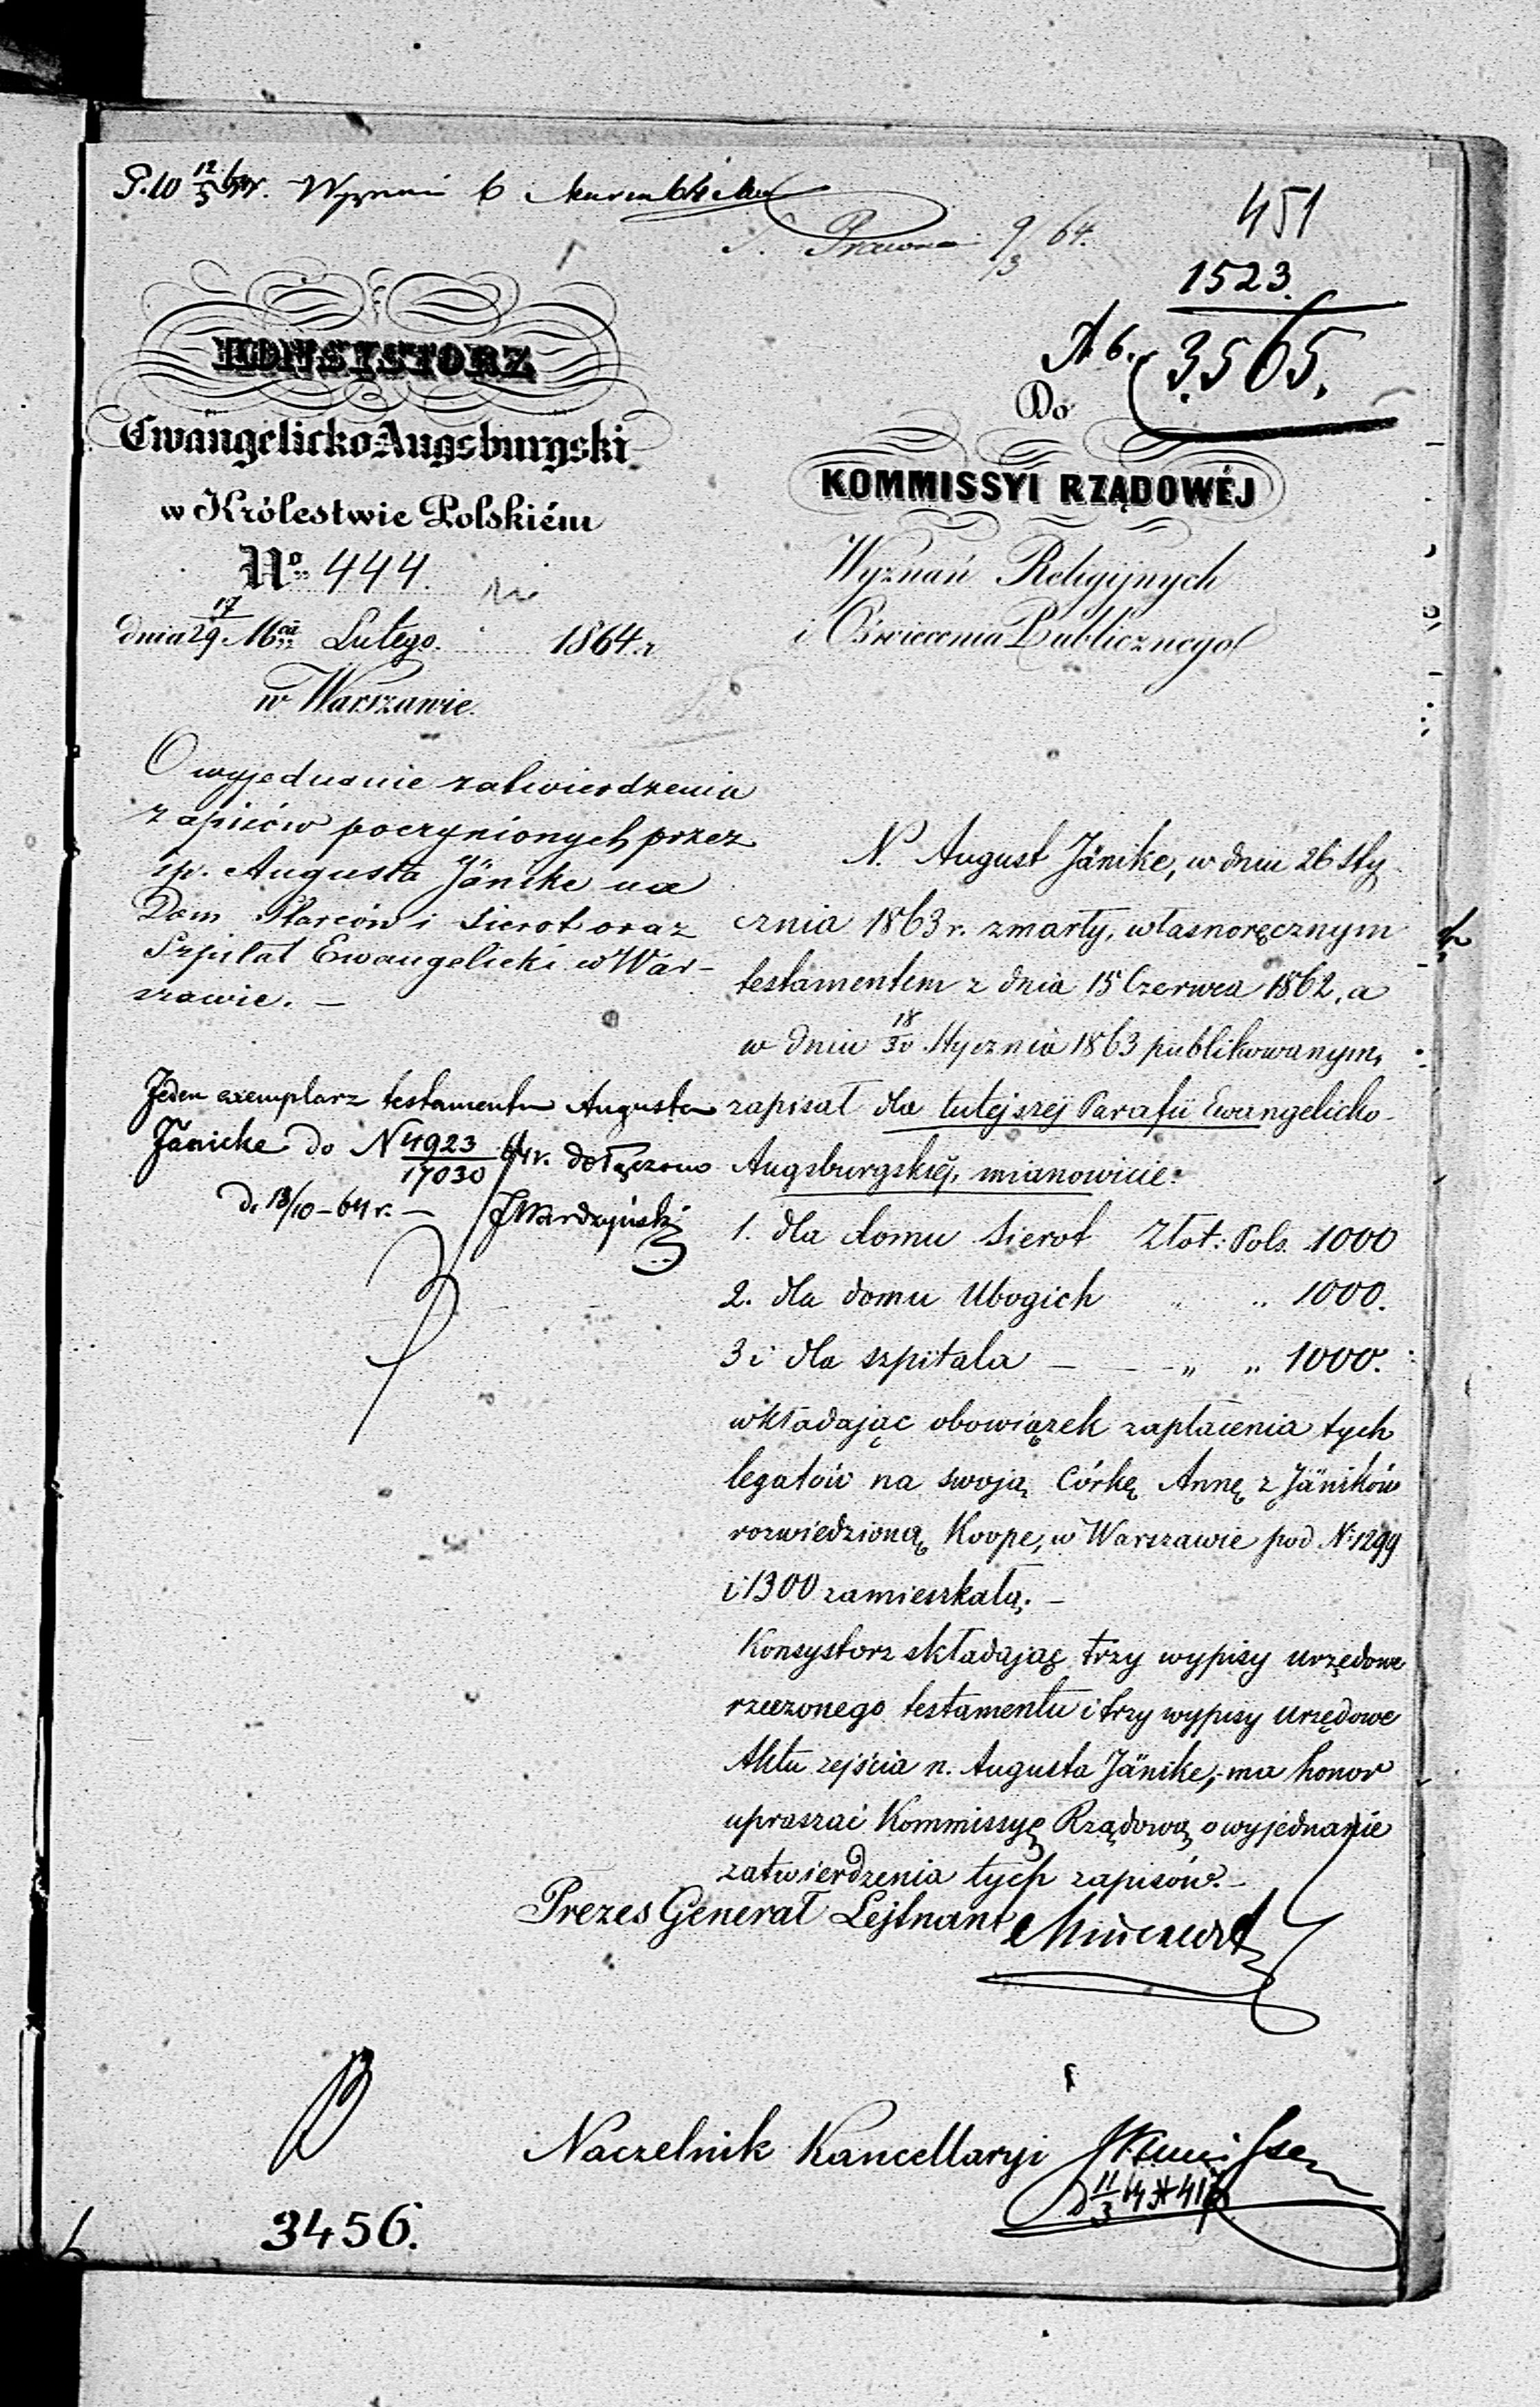 451
1523.
3565.
KONSYSTORZ
Ewangelicko-Augsburgski
w Królestwie Polskiém
No. 444.
dnia 17/29. Mca Lutego. 1864.r
w Warszawie.
Do
KOMMISSYI RZĄDOWÉJ
Wyznań Religijnych
i Oświecenia Publicznego
O wyjednanie zatwierdzenia
zapisów poczynionych przez
śp. Augusta Jänike na
Dom Starców i Sierot oraz
Szpital Ewangelicki w War-
szawie. —
Jeden exemplarz testamentu Augusta
Jänicke do N 4923/17030 64 r. dołączono
d. 13/10 - 64 r. —
N. August Jänike, w dniu 26 Sty
cznia 1863 r. zmarły, własnoręcznym
testamentem z dnia 15 Czerwca 1862, a
w dniu 18/30 Stycznia 1863 publikowanym,
zapisał dla tutejszéj Parafii Ewangelicko-
Augsburgskiéj, mianowicie:
1. dla domu Sierot Złot: Pols. 1000
2. dla domu Ubogich „ „ 1000.
3 i dla szpitala — — „ „ 1000.
wkładając obowiązek zapłacenia tych
legatów na swoją Córkę Annę z Jäników
rozwiedzioną Koope, w Warszawie pod N. 1299
i 1300 zamieszkałą. —
Konsystorz składając trzy wypisy urzędowe
rzeczonego testamentu i trzy wypisy urzędowe
Aktu zejścia n. Augusta Jänike, ma honor
upraszać Kommissyę Rządową o wyjednanie
zatwierdzenia tych zapisów. —
Prezes Generał Lejtnant
Naczelnik Kancellaryi
3456.